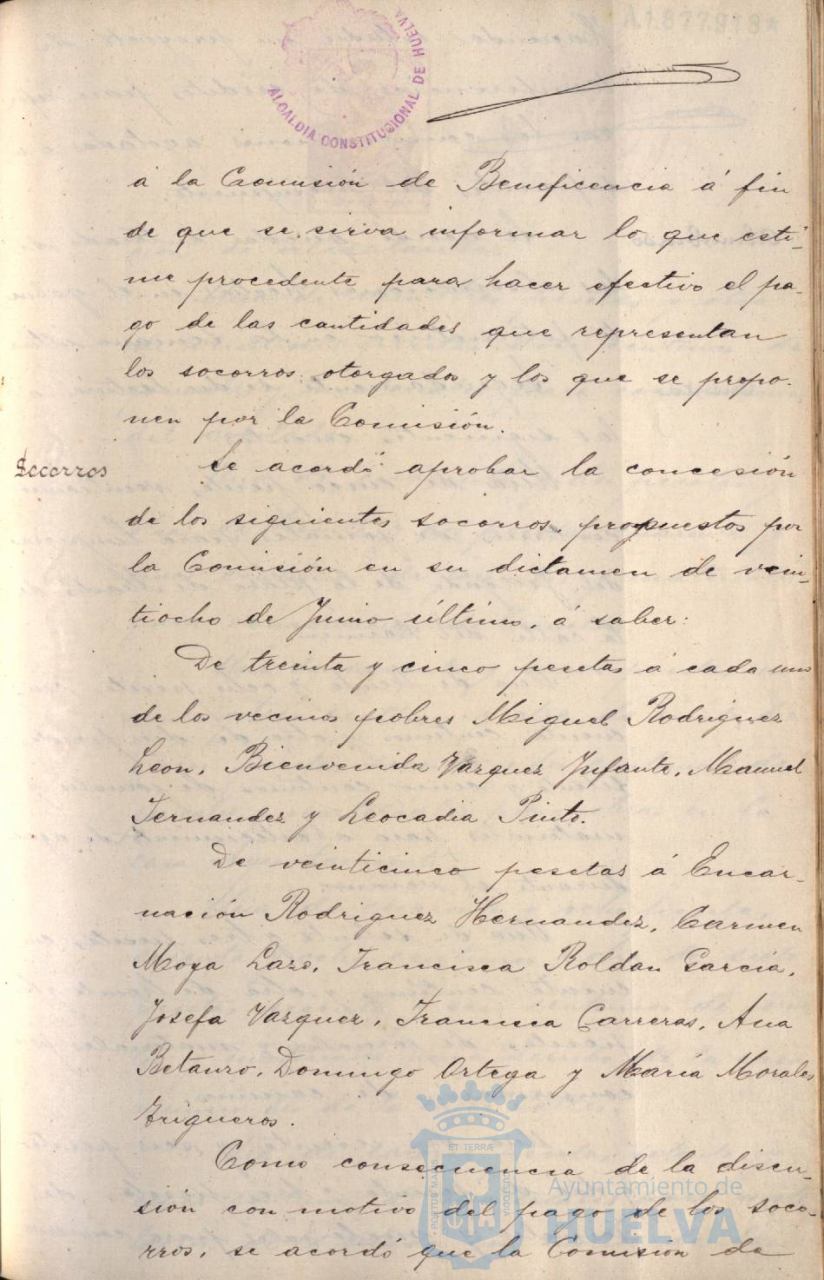 A1877918*
ALCALDÍA CONSTITUCIONAL DE HUELVA
á la Comisión de Beneficencia á fin
de que se sirva informar lo que esti-
me procedente para hacer efectivo el pa-
go de las cantidades que representan
los socorros otorgados y los que se propo-
nen por la Comisión.
Socorros
Se acordó aprobar la concesión
de los siguientes socorros, propuestos por
la Comisión en su dictamen de vein-
tiocho de Junio último, á saber:
De treinta y cinco pesetas á cada uno
de los vecinos pobres Miguel Rodriguez
Leon, Bienvenida Vazquez Infante, Manuel
Fernandez y Leocadia Pinto.
De veinticinco pesetas á Encar-
nación Rodriguez Hernandez, Carmen
Moya Lazo, Francisca Roldan García,
Josefa Vazquez, Francisca Carreras, Ana
Betanzo, Domingo Ortega y María Morales
Trigueros.
Como consecuencia de la discu-
sión con motivo del pago de los soco-
rros, se acordó que la Comisión de
ET TERRÆ
PORTUS MARIS
CUSTODIA
Ayuntamiento de
HUELVA